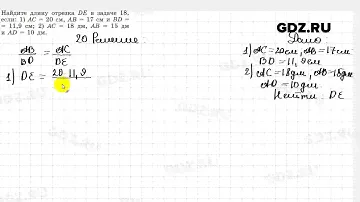 Найдите длину отрезка DE в задаче 18,
если: 1) AC = 20 см, AB = 17 см и BD =
= 11,9 см; 2) AC = 18 дм, AB = 15 дм
и AD = 10 дм.
GDZ.RU
20 Решение
Дано
AB/BD = AC/DE
1) DE = 20·11,9
1) AC=20см, AB=17см
BD=11,9см
2) AC=18дм, AB=15дм
AD=10дм
Найти: DE